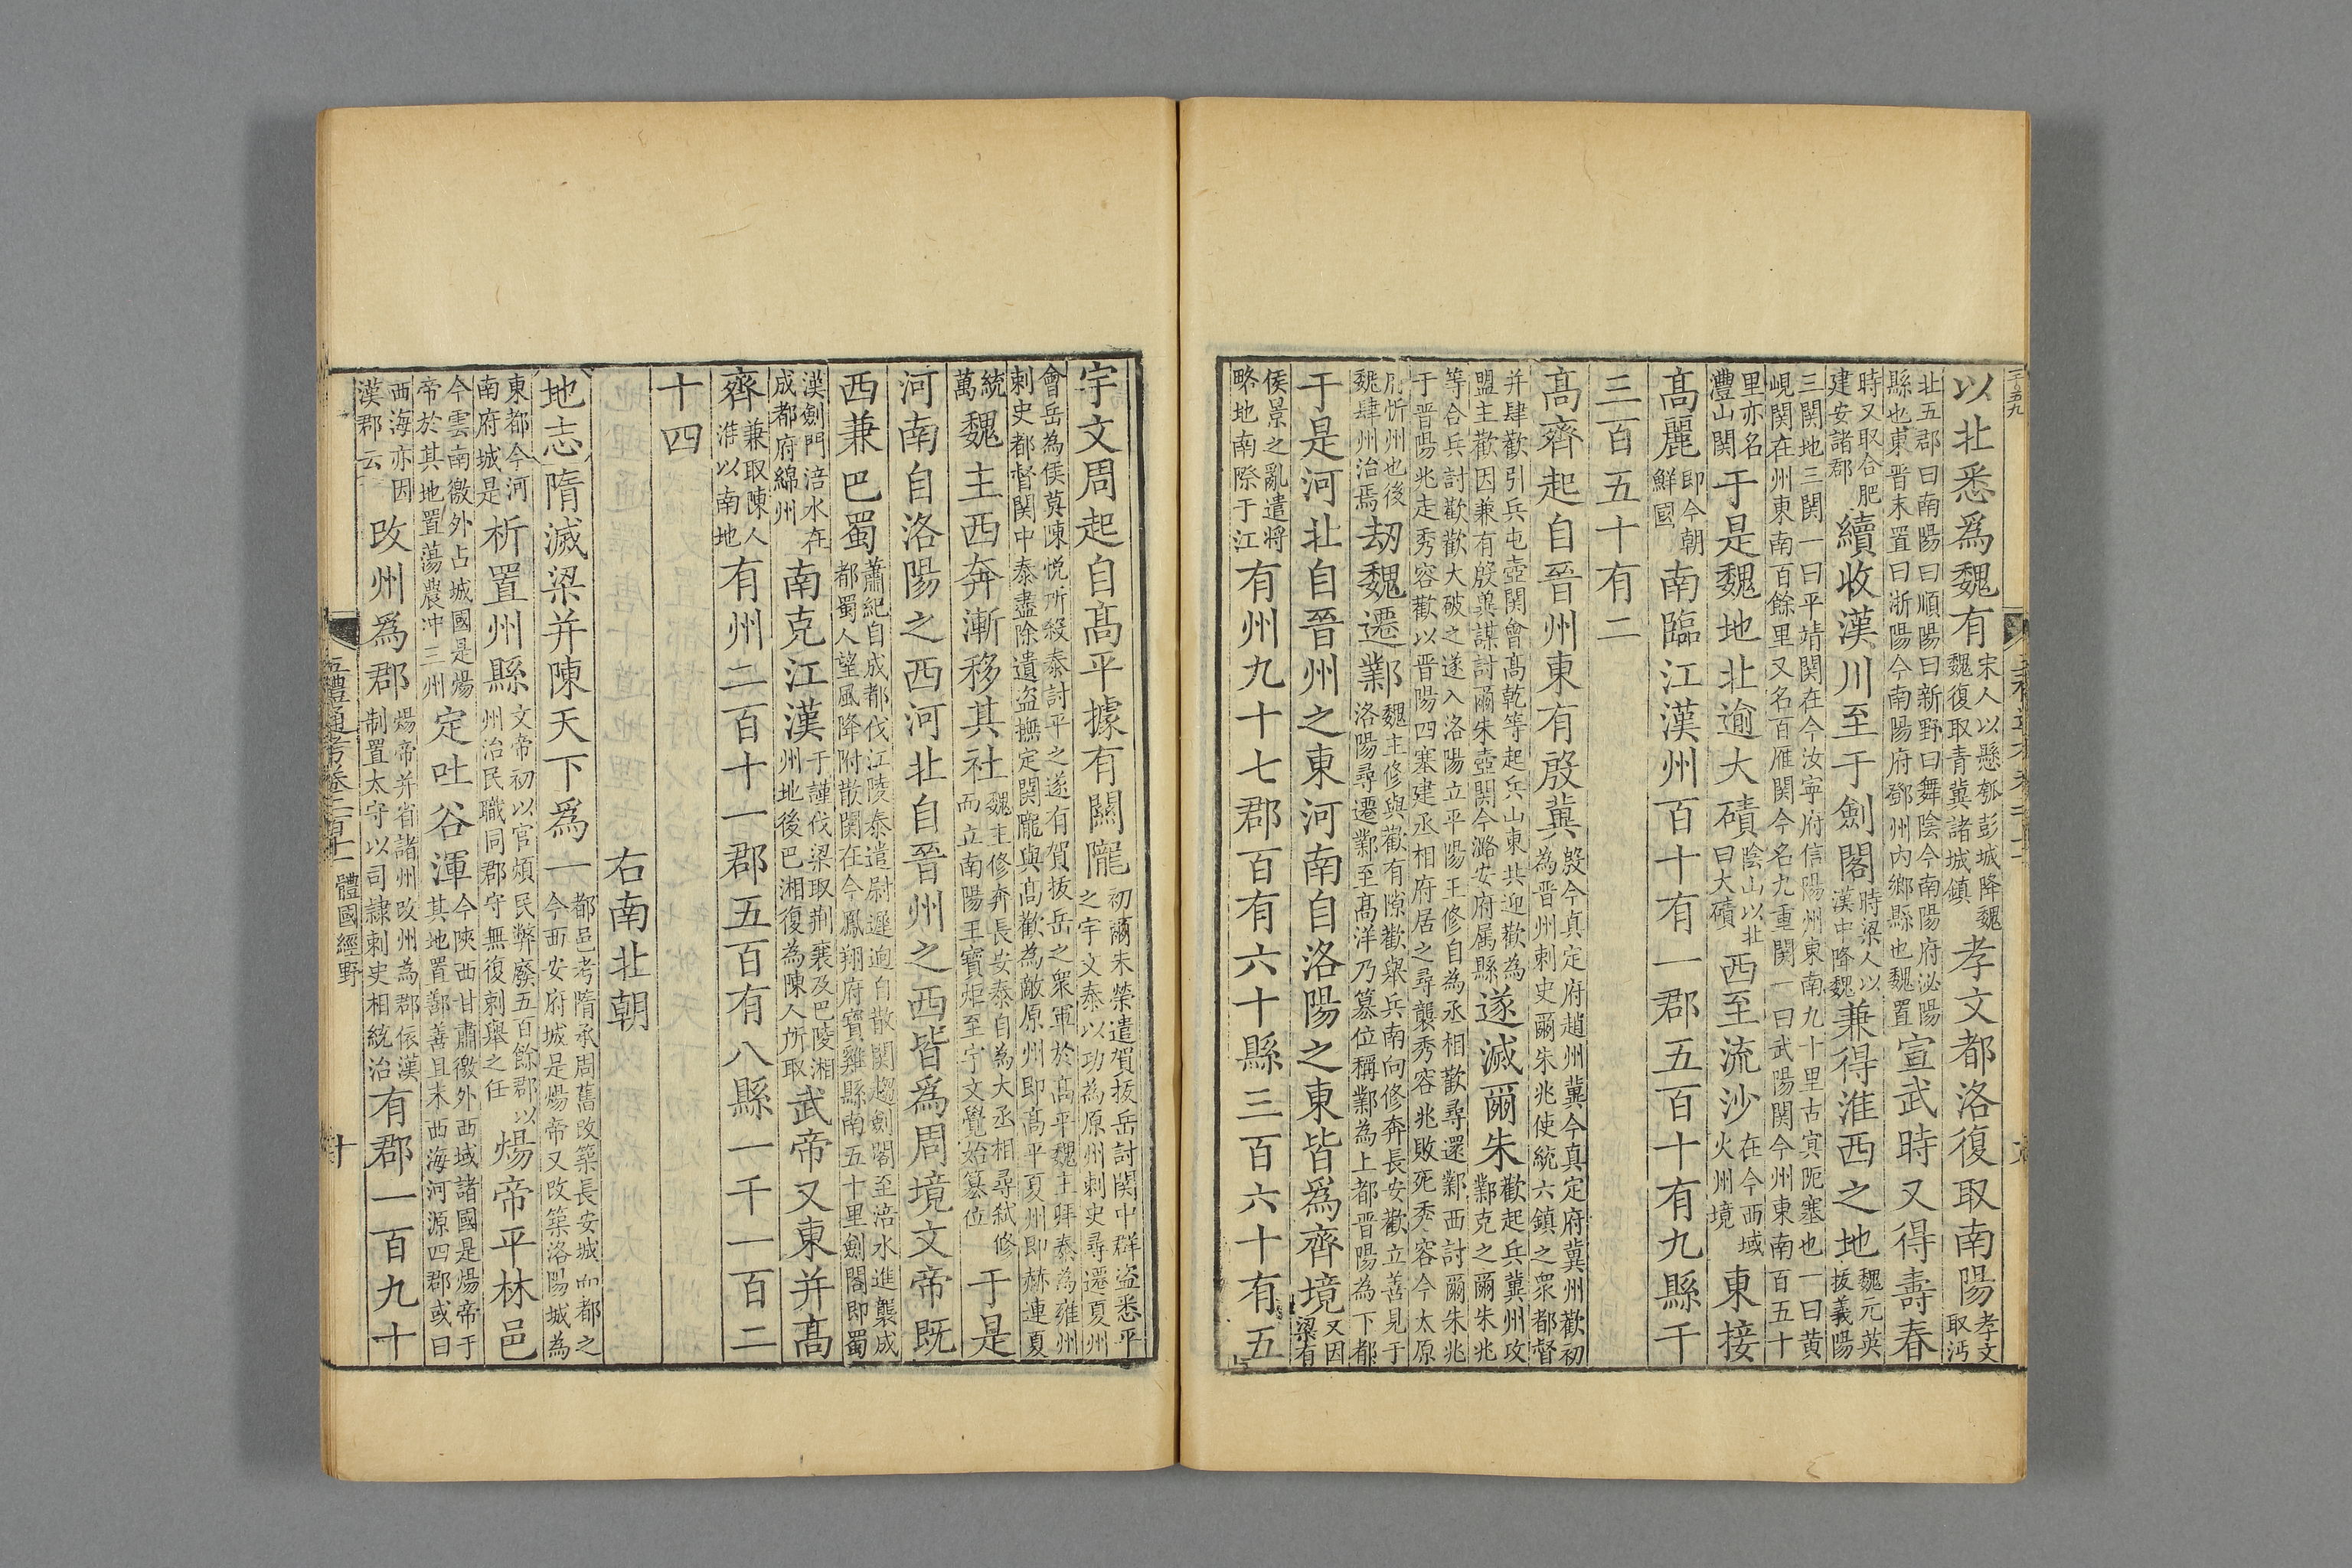 以北悉爲魏有宋人以懸瓠彭城降魏魏復取青冀諸城鎮孝文都洛復取南陽孝文取沔
北五郡曰南陽曰順陽曰新野曰舞陰今南陽府泌陽縣也東晉末置曰淅陽今南陽府鄧州內鄉縣也魏置宣武時又得壽春
時又取合肥建安諸郡續收漢川至于劍閣時梁人以漢中降魏兼得淮西之地魏元英拔義陽
三関地三関一曰平靖関在今汝寧府信陽州東南九十里古㝠阨塞也一曰黃峴関在州東南百餘里又名百雁関今名九重関一曰武陽関今州東南百五十
里亦名灃山関于是魏地北逾大磧陰山以北曰大磧西至流沙在今西域火州境東接
髙麗即今朝鮮國南臨江漢州百十有一郡五百十有九縣千
三百五十有二
髙齊起自晉州東有殷冀殷今真定府趙州冀今真定府冀州歡初為晉州刺史爾朱兆使統六鎮之眾都督
并肆歡引兵屯壺関會髙乾等起兵山東共迎歡為盟主歡因兼有殷冀謀討爾朱壺関今潞安府属縣遂滅爾朱歡起兵冀州攻鄴克之爾朱兆
等合兵討歡歡大破之遂入洛陽立平陽王修自為丞相歡尋還鄴西討爾朱兆于晋陽兆走秀容歡以晋陽四塞建丞相府居之尋襲秀容兆敗死秀容今太原
府忻州也後魏肆州治焉劫魏遷鄴魏主修與歡有隙歡舉兵南向修奔長安歡立善見于洛陽尋遷鄴至髙洋乃篡位稱鄴為上都晋陽為下都
于是河北自晉州之東河南自洛陽之東皆爲齊境又因梁有
侯景之亂遣將略地南際于江有州九十七郡百有六十縣三百六十有五
宇文周起自髙平據有關隴初爾朱榮遣賀拔岳討関中群盜悉平之宇文泰以功為原州刺史尋遷夏州
會岳為侯莫陳悅所殺泰討平之遂有賀拔岳之眾軍於髙平魏主拜泰為雍州刺史都督関中泰盡除遺盜撫定関隴與髙歡為敵原州即髙平夏州即赫連夏
統萬魏主西奔漸移其社魏主修奔長安泰自為大丞相尋弒修而立南陽王寶炬至宇文覺始篡位于是
河南自洛陽之西河北自晉州之西皆爲周境文帝既
西兼巴蜀蕭紀自成都伐江陵泰遣尉遲迥自散関趨劍閣至涪水進襲成都蜀人望風降附散関在今鳳翔府寶雞縣南五十里劍閣即蜀
漢劍門涪水在成都府綿州南克江漢于謹伐梁取荆襄及巴陵湘州地後巴湘復為陳人所取武帝又東并髙
齊兼取陳人淮以南地有州二百十一郡五百有八縣一千一百二
十四
右南北朝
地志隋滅梁并陳天下爲一都邑考隋承周舊改築長安城而都之今西安府城是煬帝又改築洛陽城為
東都今河南府城是析置州縣文帝初以官煩民弊廢五百餘郡以州治民職同郡守無復刺舉之任煬帝平林邑
今雲南徼外占城國是煬帝於其地置蕩農冲三州定吐谷渾今陝西甘肅徼外西域諸國是煬帝于其地置鄯善且末西海河源四郡或曰
西海亦因漢郡云改州爲郡煬帝并省諸州改州為郡依漢制置太守以司隷刺史相統治有郡一百九十
五禮通考卷二百十一 體國經野
十